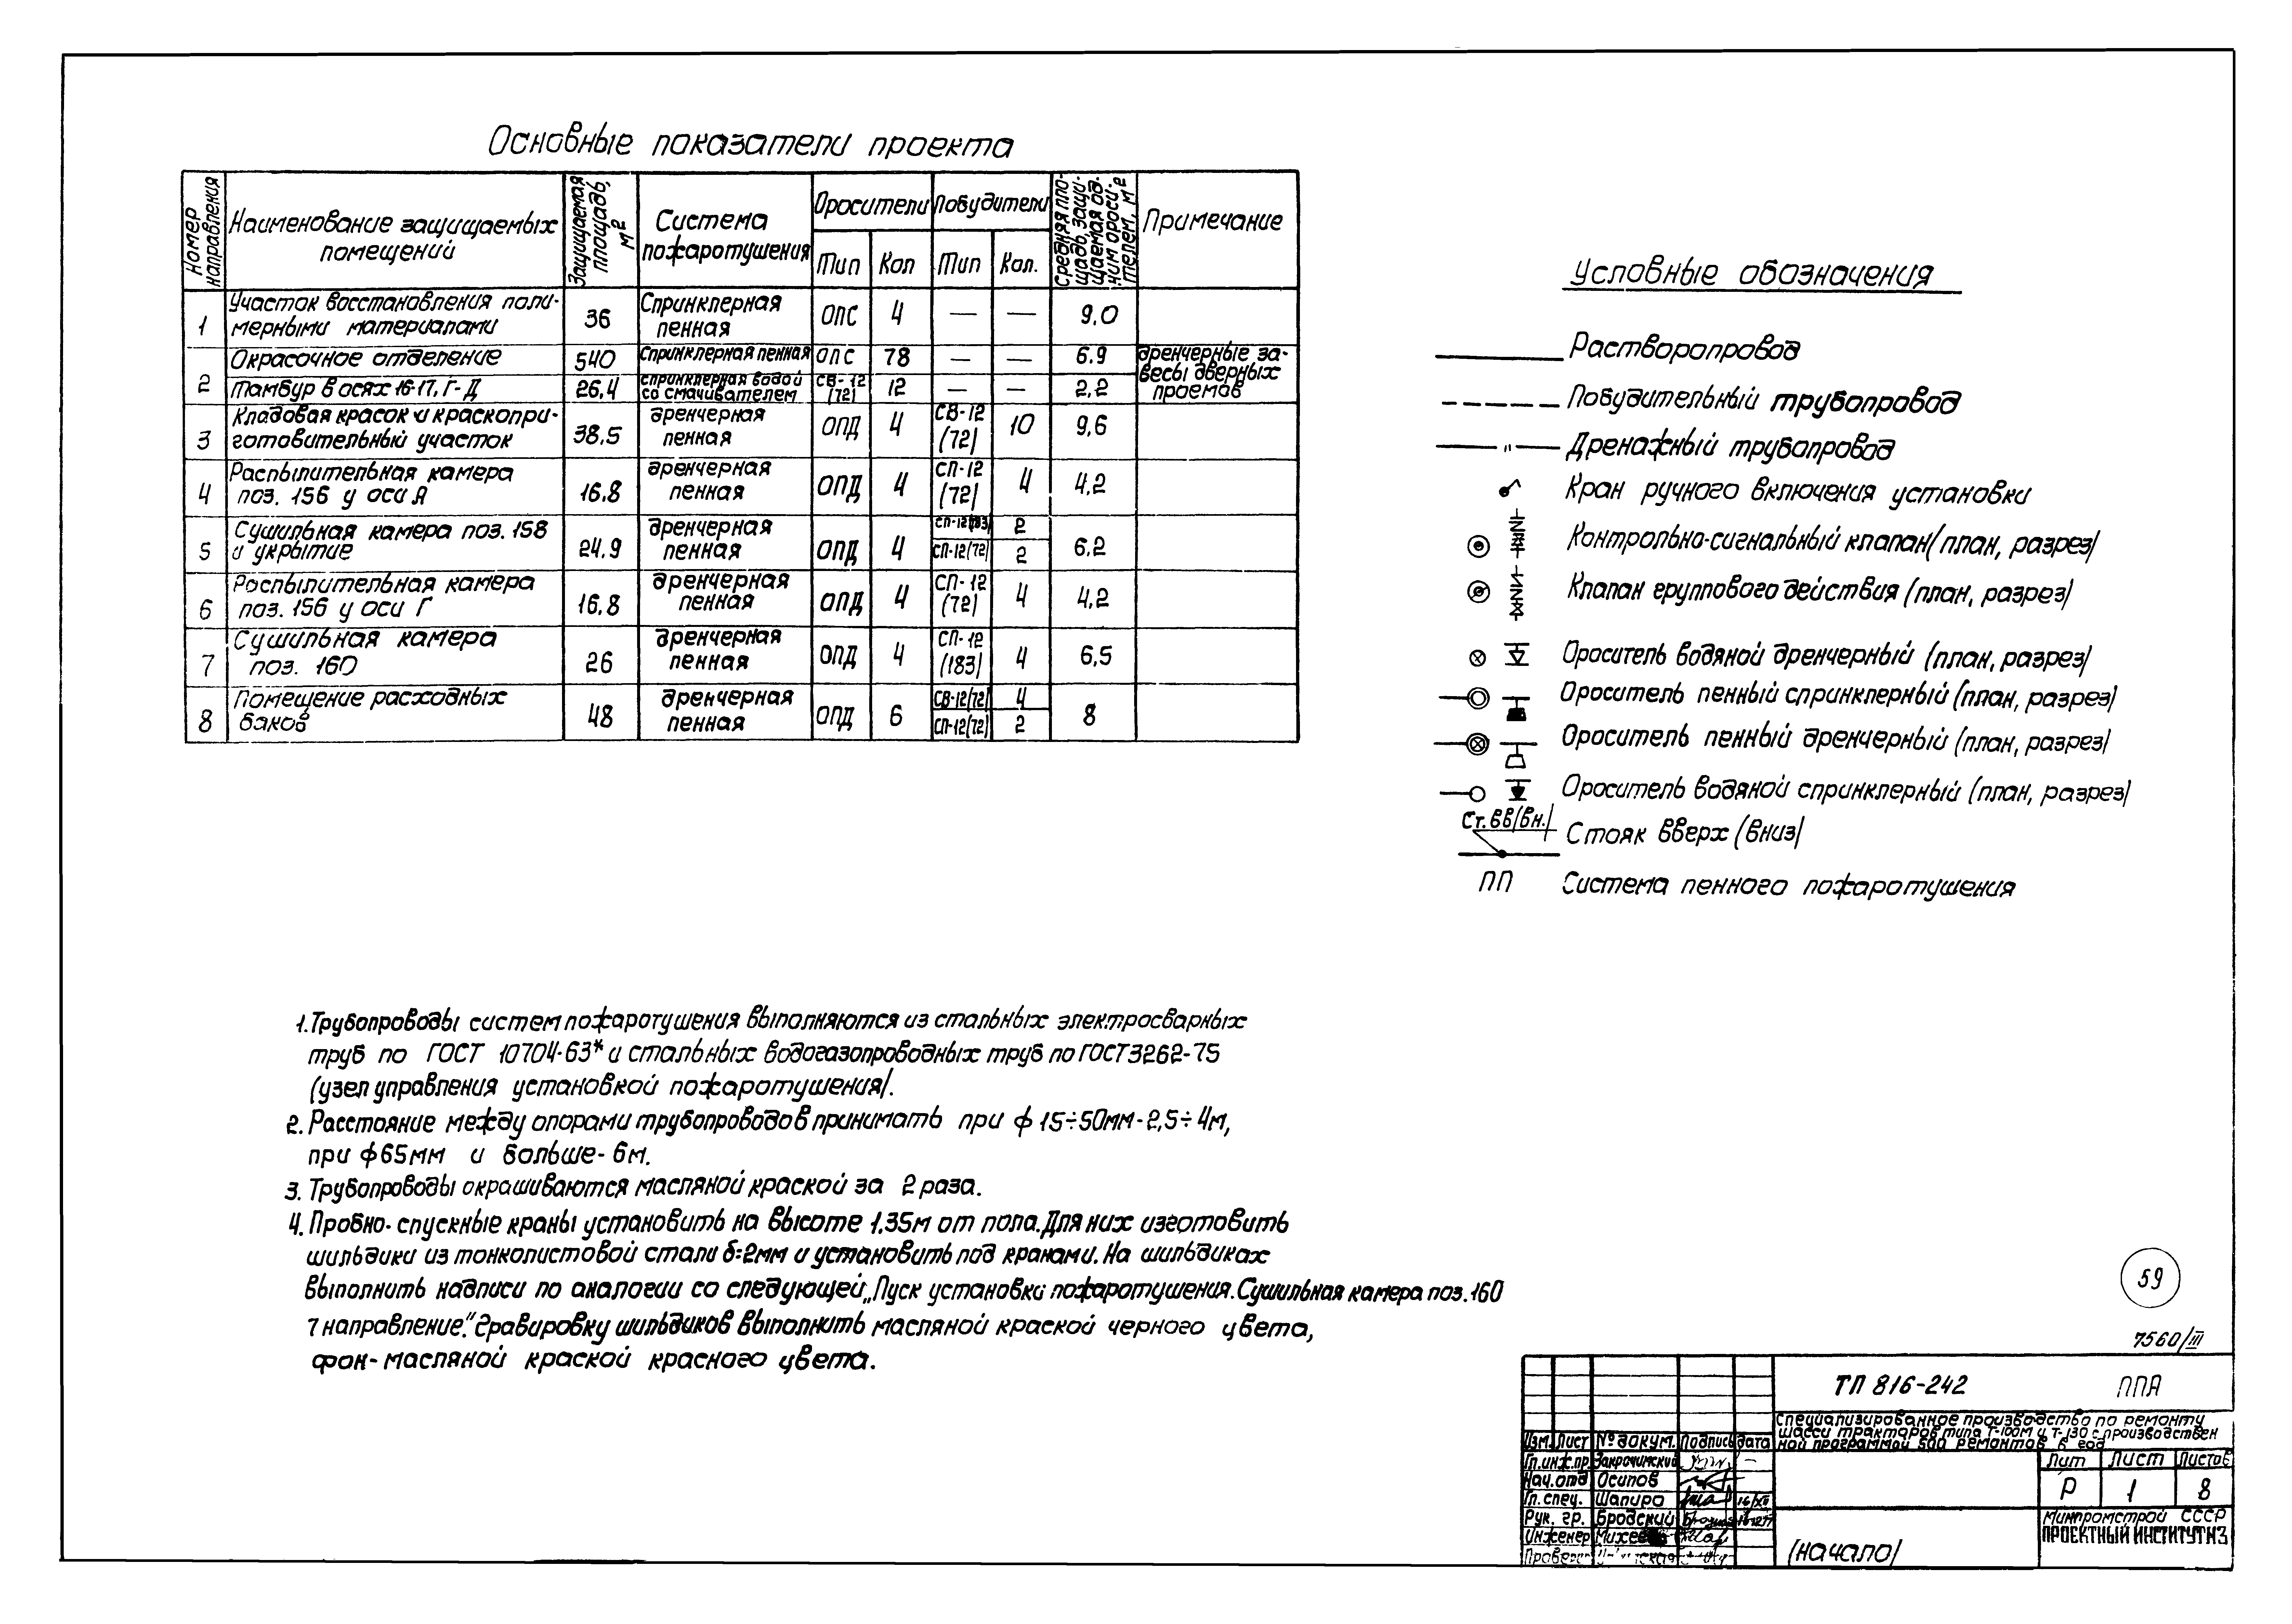 Основные показатели проекта
Номер направления
Наименование защищаемых помещений
Защищаемая площадь, м2
Система пожаротушения
Оросители
Побудители
Тип
Кол
Тип
Кол.
Средняя площадь, защищаемая одним оросителем, м2
Примечание
1 Участок восстановления полимерными материалами 36 Спринклерная пенная ОПС 4 — — 9,0
2 Окрасочное отделение 540 Спринклерная пенная ОПС 78 — — 6.9 дренчерные завесы дверных проемов
Тамбур в осях 16-17, Г-Д 26,4 спринклерная водой со смачивателем СВ-12 (72) 12 — — 2,2
3 Кладовая красок и краскоприготовительный участок 38,5 дренчерная пенная ОПД 4 СВ-12 (72) 10 9,6
4 Распылительная камера поз. 156 у оси А 16.8 дренчерная пенная ОПД 4 СП-12 (72) 4 4,2
5 Сушильная камера поз. 158 и укрытие 24.9 дренчерная пенная ОПД 4 СП-12(183) 2 СП-12(72) 2 6,2
6 Роспылительная камера поз. 156 у оси Г 16.8 дренчерная пенная ОПД 4 СП-12 (72) 4 4,2
7 Сушильная камера поз. 160 26 дренчерная пенная ОПД 4 СП-12 (183) 4 6,5
8 Помещение расходных баков 48 дренчерная пенная ОПД 6 СВ-12(72) 4 СП-12(72) 2 8
Условные обозначения
Растворопровод
Побудительный трубопровод
Дренажный трубопровод
Кран ручного включения установки
Контрольно-сигнальный клапан (план, разрез)
Клапан группового действия (план, разрез)
Ороситель водяной дренчерный (план, разрез)
Ороситель пенный спринклерный (план, разрез)
Ороситель пенный дренчерный (план, разрез)
Ороситель водяной спринклерный (план, разрез)
Ст. вв(вн.) Стояк вверх (вниз)
ПП Система пенного пожаротушения
1. Трубопроводы систем пожаротушения выполняются из стальных электросварных
труб по ГОСТ 10704-63* и стальных водогазопроводных труб по ГОСТ 3262-75
(узел управления установкой пожаротушения).
2. Расстояние между опорами трубопроводов принимать при ф 15÷50мм-2,5÷4м,
при ф65мм и больше-6м.
3. Трубопроводы окрашиваются масляной краской за 2 раза.
4. Пробно-спускные краны установить на высоте 1,35м от пола. Для них изготовить
шильдики из тонколистовой стали б=2мм и установить под кранами. На шильдиках
выполнить надписи по аналогии со следующей „Пуск установки пожаротушения. Сушильная камера поз. 160
7 направление". Гравировку шильдиков выполнить масляной краской черного цвета,
фон-масляной краской красного цвета.
59
7560/III
ТП 816-242 ППА
Специализированное производство по ремонту
шасси тракторов типа Т-100М и Т-130 с производствен
ной программой 500 ремонтов в год
Изм. Лист № докум. Подпись Дата
Гл. инж. пр. Закрочимский
Нач. отд Осипов
Гл. спец. Шапиро 16/XII
Рук. гр. Бродский
Инженер
Лит Лист Листов
Р 1 8
(начало)
Минпромстрой СССР
ПРОЕКТНЫЙ ИНСТИТУТ №3